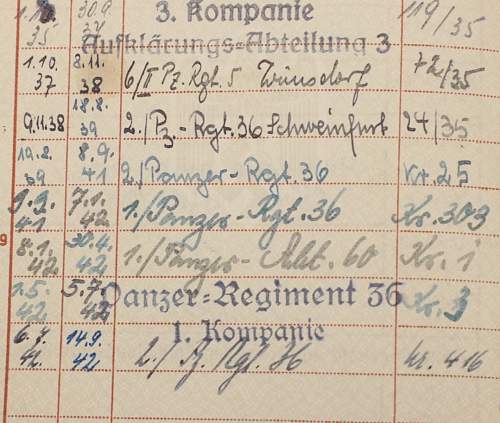 1. 30.9. 3. Kompanie 119/35
35 37 Aufklärungs=Abteilung 3
1.10. 8.11. 6/II Pz. Rgt. 5 Wünsdorf 72/35
37 38
9.11.38 18.8. 2./Pz.-Rgt. 36 Schweinfurt 24/35
39
19.8. 8.9. 2./Panzer-Rgt. 36 Kr. 25
39 41
9.9. 7.1. 1./Panzer-Rgt. 36 Kr. 303
41 42
9 8.1. 30.4. 1./Panzer-Abt. 60 Kr. 1
42 42
1.5. 5.7. Panzer=Regiment 36 Kr. 3
42 42
1. Kompanie
6.7. 14.9. 2./Pz. Rgt. 36 Kr. 416
42 42